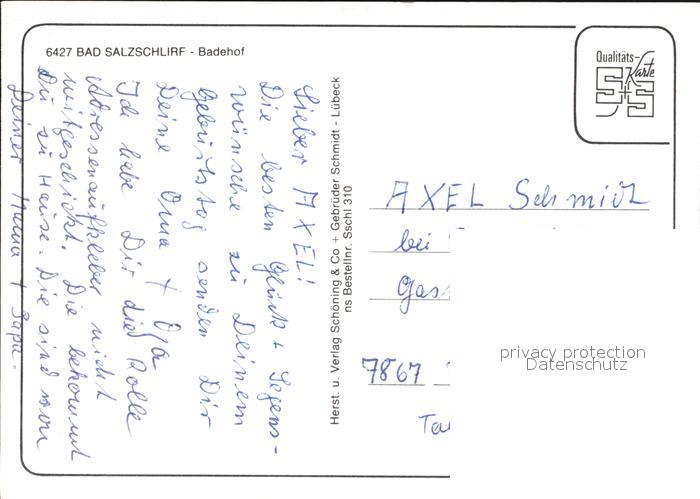 6427 BAD SALZSCHLIRF - Badehof
Lieber AXEL!
Die besten Glück + Segens-
wünsche zu Deinem
Geburtstag senden Dir
Deine Oma + Opa
Ich habe Dir die Rolle
Adressenaufkleber nicht
mitgeschickt. Die bekommst
Du zu Hause. Die sind von
Deiner Mama + Papa.
Herst. u. Verlag Schöning & Co + Gebrüder Schmidt - Lübeck
ns Bestellnr. Sschl 310
Qualitäts-
Karte
S+S
AXEL Schmidt
bei
Gas
7867
Ta
privacy protection
Datenschutz